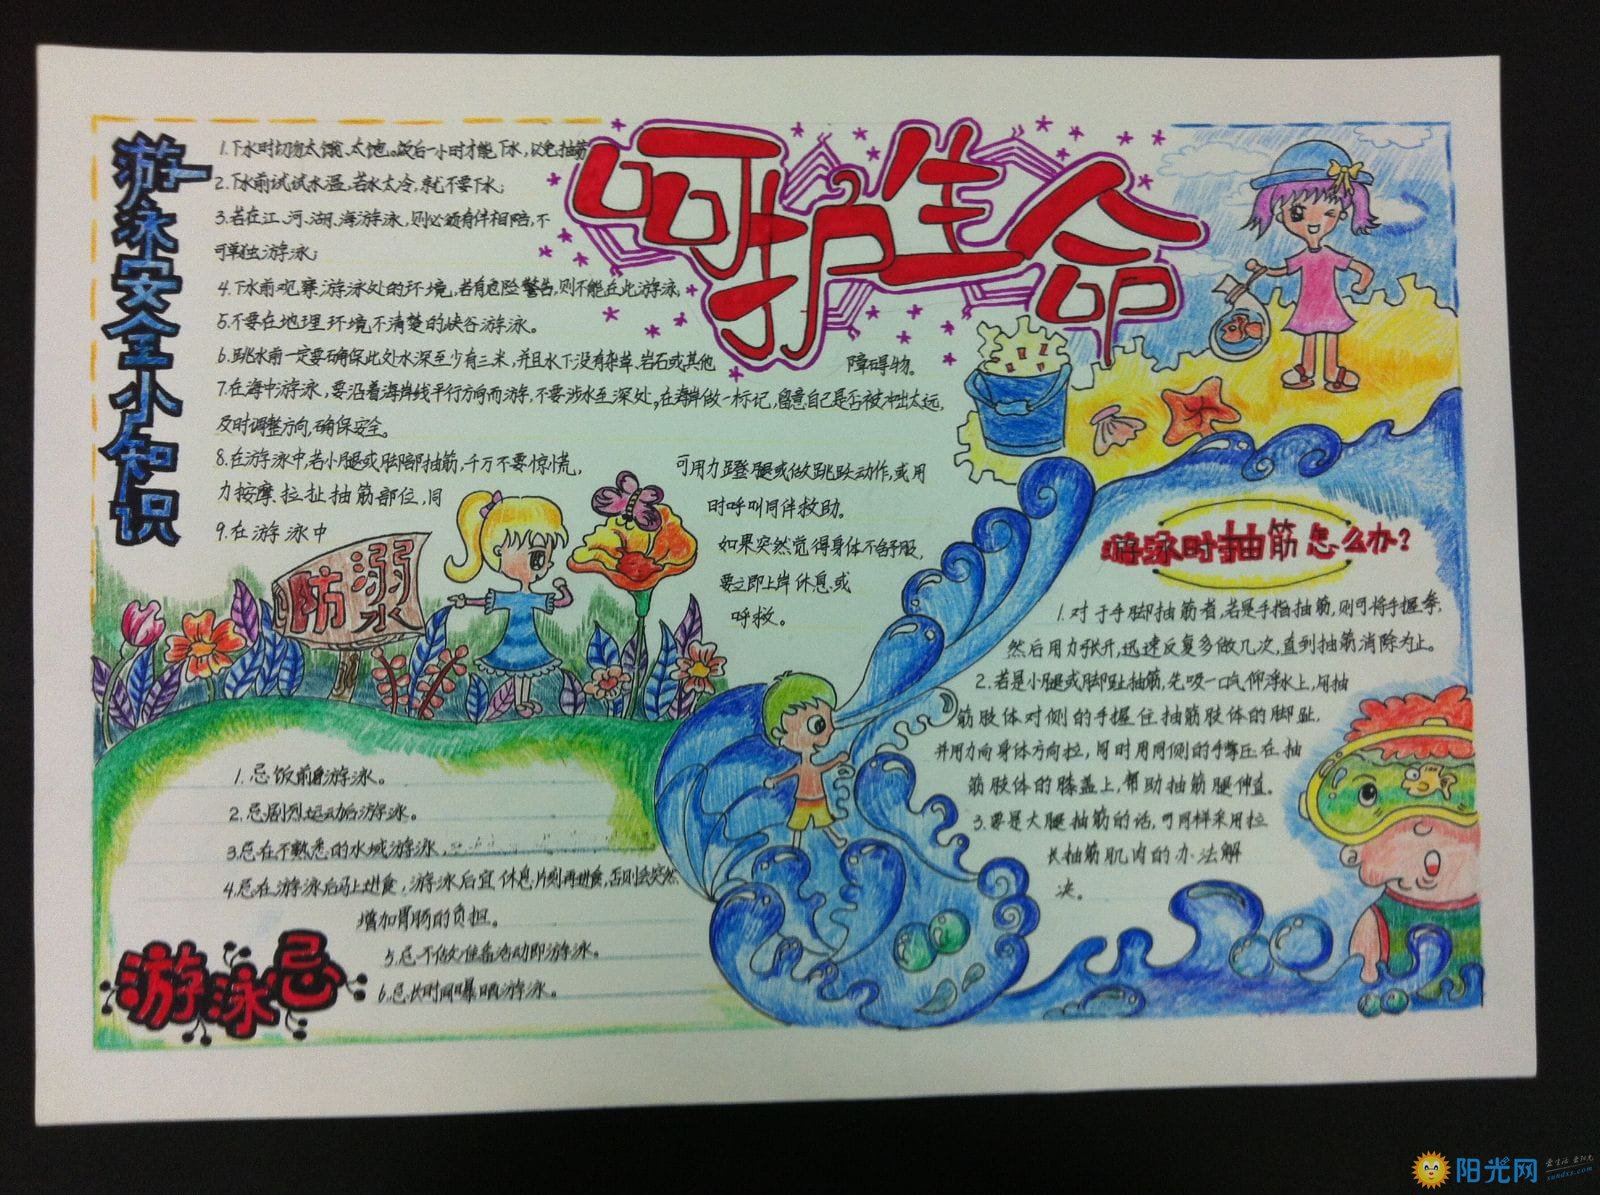 呵护生命
游泳安全小知识
1.下水时切勿太饿、太饱。饭后一小时才能下水,以免抽筋
2.下水前试试水温,若水太冷,就不要下水;
3.若在江、河、湖、海游泳,则必须有伴相陪,不
可单独游泳;
4.下水前观察游泳处的环境,若有危险警告,则不能在此游泳,
5.不要在地理环境不清楚的峡谷游泳。
6.跳水前一定要确保此处水深至少有三米,并且水下没有杂草、岩石或其他 障碍物。
7.在海中游泳,要沿着海岸线平行方向而游,不要涉水至深处,在海岸做一标记,留意自己是否被冲出太远,
及时调整方向,确保安全。
8.在游泳中,若小腿或脚部抽筋,千万不要惊慌, 可用力蹬腿或做跳跃动作,或用
力按摩、拉扯抽筋部位,同 时呼叫同伴救助。
9.在游泳中 如果突然觉得身体不舒服,
要立即上岸休息或
呼救。
防溺水
游泳时抽筋怎么办?
1.对于手脚抽筋者,若是手指抽筋,则可将手握拳,
然后用力张开,迅速反复多做几次,直到抽筋消除为止。
2.若是小腿或脚趾抽筋,先吸一口气仰浮水上,用抽
筋肢体对侧的手握住抽筋肢体的脚趾,
并用力向身体方向拉,同时用同侧的手掌压在抽
筋肢体的膝盖上,帮助抽筋腿伸直。
3.要是大腿抽筋的话,可同样采用拉
长抽筋肌肉的办法解
决。
1.忌饭前后游泳。
2.忌剧烈运动后游泳。
3.忌在不熟悉的水域游泳,
4.忌在游泳后马上进食,游泳后宜休息片刻再进食,否则会突然
增加胃肠的负担。
5.忌不做准备活动即游泳。
6.忌长时间曝晒游泳。
游泳忌
阳光网
爱生活 爱阳光